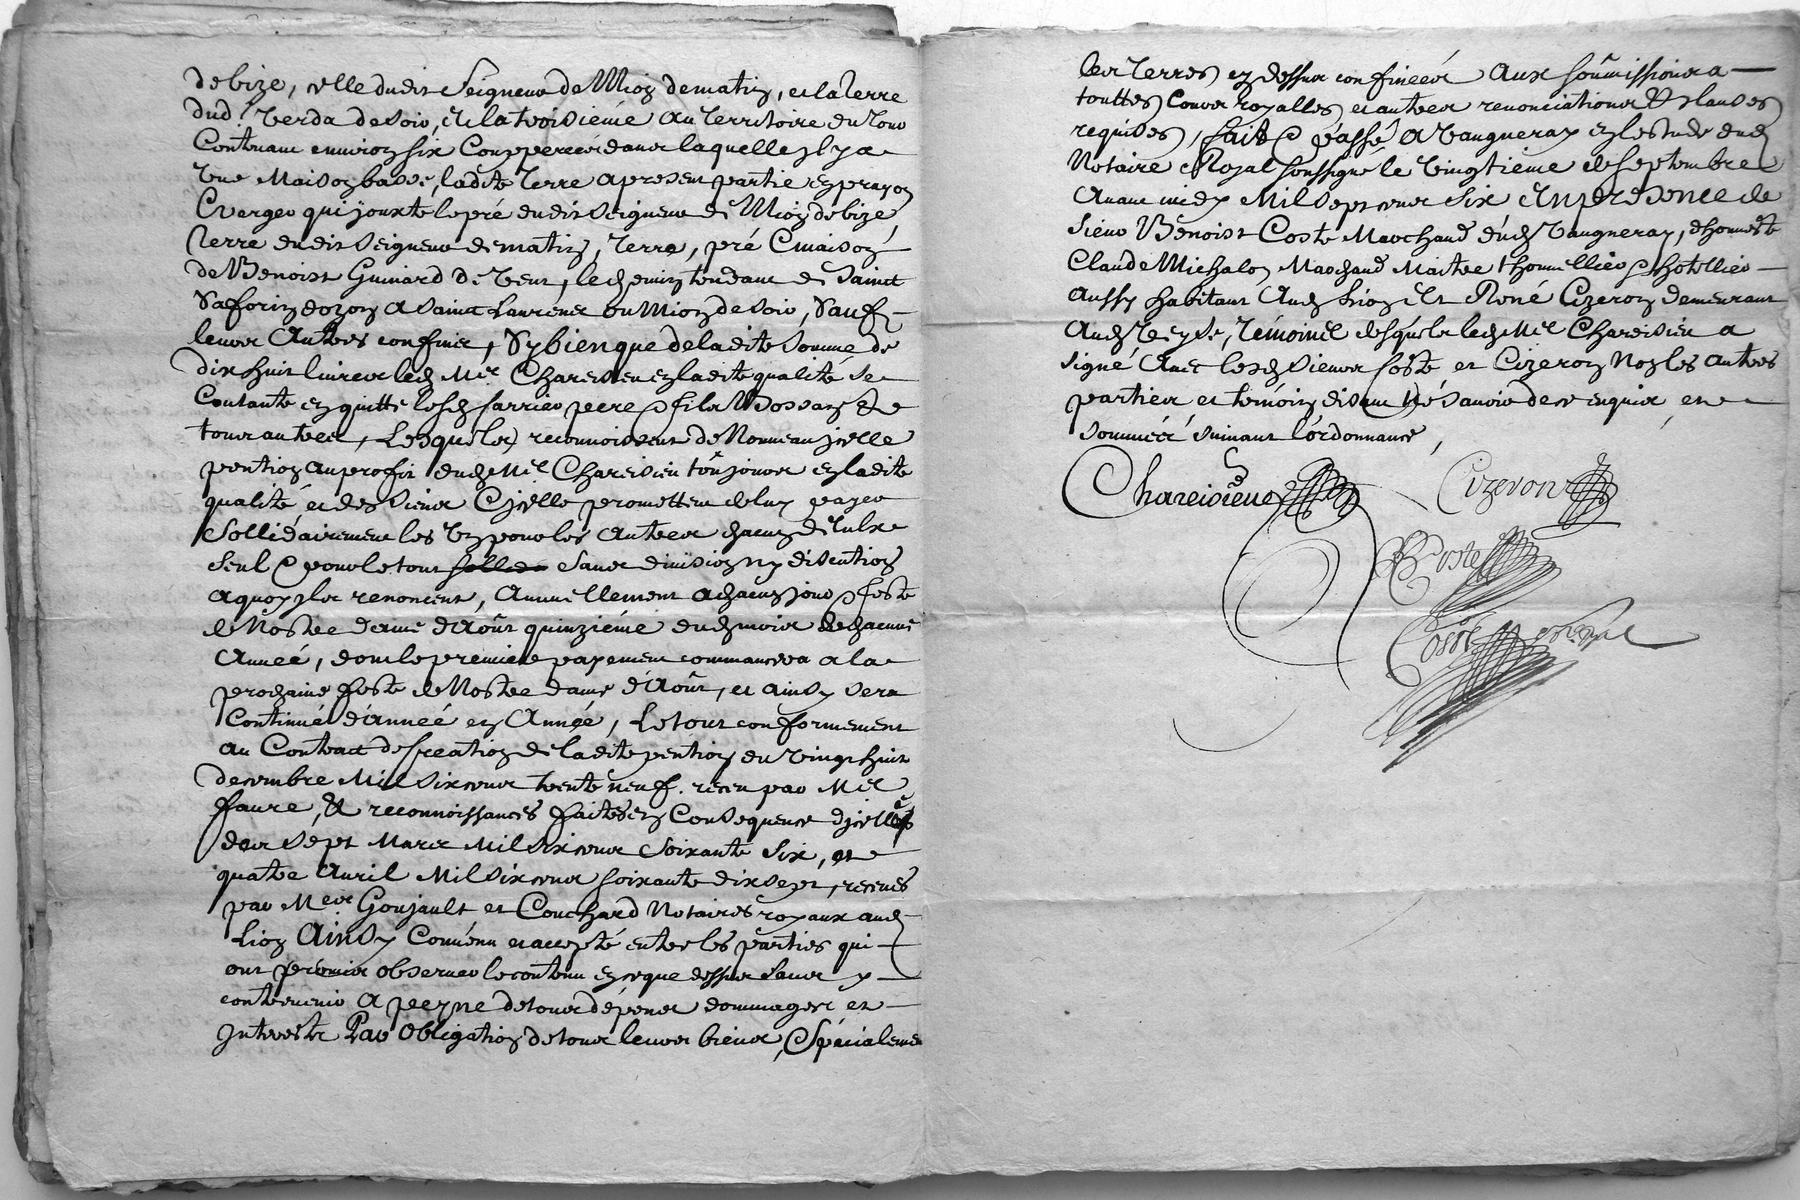 de bize, celle dudit Seigneur de Mioz de matin, et la terre
dud. Verda de soir, et la troisiéme au territoire du
Contenant environ six Coupperées dans laquelle il y a
une Maison basse, ladite Terre a present partie en prayon
& verger qui jouxte le pré dudit seigneur de Mioz de bize,
Terre dudit Seigneur de matin, Terre, pré & maison
de Benoist Guinard de vent, le chemin tendant de Sainct
Saforin dozon a Sainct Laurent ou Mion de soir, Sauf
leurs Autres confins, Sy bien que de ladite somme de
dix huit livres led. Mre. Chareisieu en ladite qualité se
Contante en quitte lesd. farrier pere & fils & tous
tous autres, Lesquels reconnoissent de Nouveau jcelle
pention au profit dud. Mre. Chareisieu toujours en ladite
qualité et des siens & jcelle promettent de luy payer
Sollidairement les uns pour les Autres chacun d'eulx
Seul & pour le tout sans division ny discution
a quoy ils renoncent, Annuellement a chacun jour & feste
de Nostre dame d'Aoûst quinziéme dud. mois de chacune
Année, dont le premier payement commancera a la
prochaine feste de Nostre dame d'Aoûst, et ainsy sera
Continué d'année en Année, Le tout conformement
au Contract de creation de ladite pention du vingt huit
decembre Mil six cens trente neuf. receu par Mre.
faure, & reconnoissances faites en Consequence d'jcelle
des sept Mars Mil six cens Soixante Six, et
quatre Avril Mil six cens soixante dix sept, receues
par Mes. Goujault et Couchard Notaires royaux aud.
Lion Ainsy Convenu et accepté entre les parties qui
ont promis observer le contenu en ce que dessus sans y
contrevenir A peyne de tous dépens dommages et
Interests Par Obligation de tous leurs biens, & Spécialement
Les Terres cy dessus confinées Aux soûmissions a
touttes Cours royalles et autres renonciations & clauses
requises, fait & passé A Vaugneray en l'estude dud.
Notaire Royal soussigné le vingtiéme de Septembre
Avant midy Mil sept cens six En presence de
Sieur Benoist Coste Marchand dud. Vaugneray, & honneste
Claude Michalon Marchand Maitre thonnellier & hotellier
Aussy habitant Aud. lion Et René Cizeron demeurant
Aud. Témoins desquels led. Mre. Chareisieu a
signé Avec lesd. sieurs Coste et Cizeron Non les Autres
parties et témoin disant ne savoir de ce enquis, et
sommées suivant l'ordonnance,
Chareisieue Cizeron
B Coste
Coste